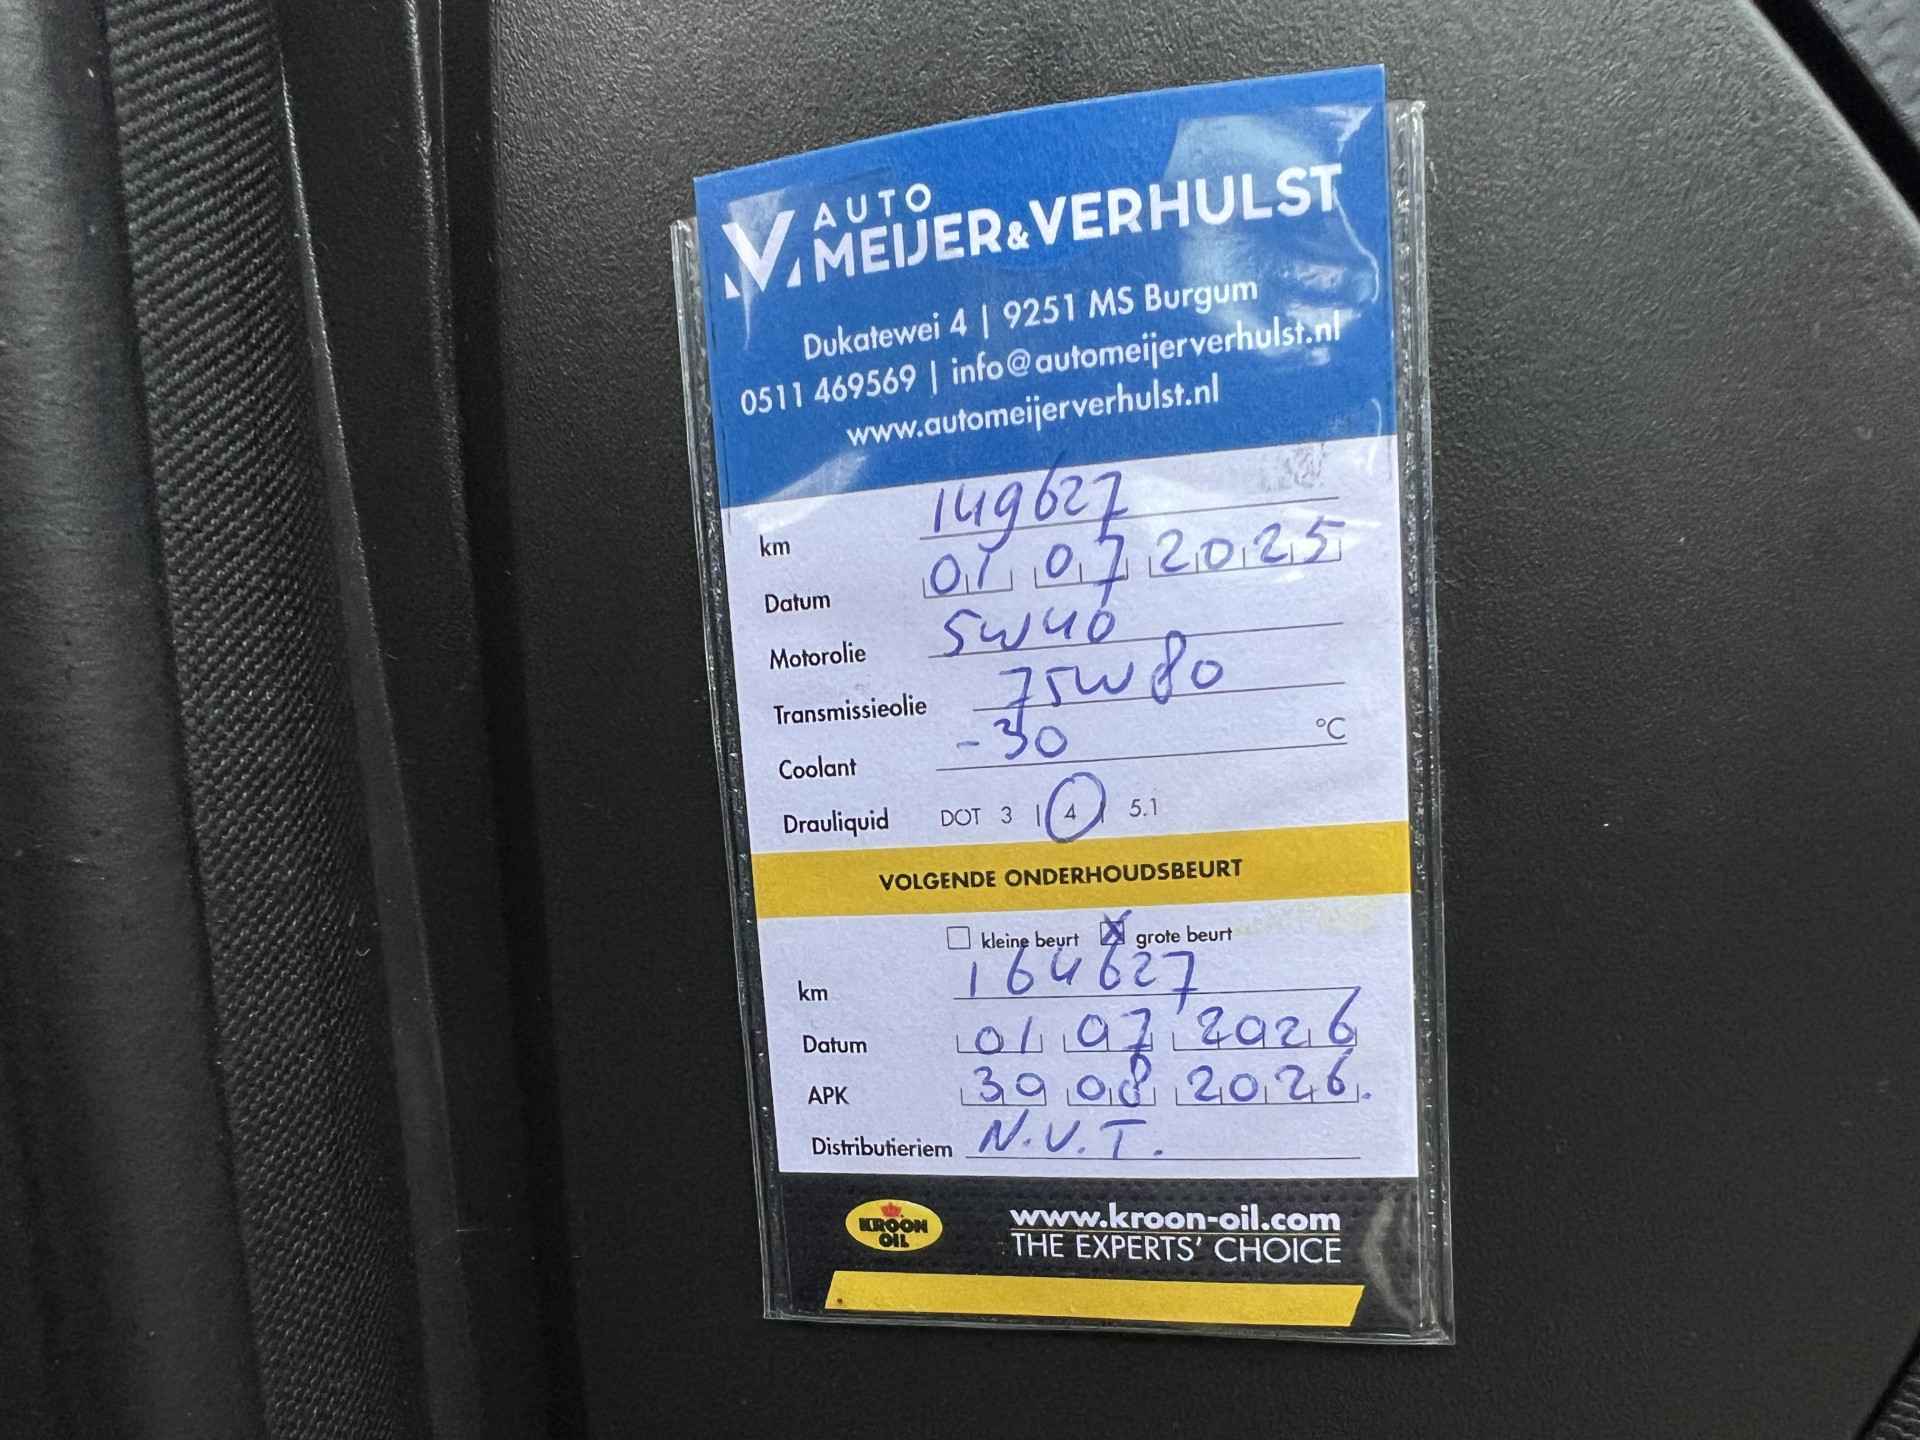 AUTO
MEIJER&VERHULST
Dukatewei 4 | 9251 MS Burgum
0511 469569 | info@automeijerverhulst.nl
www.automeijerverhulst.nl
km 149627
Datum 01 07 2025
Motorolie 5W40
Transmissieolie 75W80
Coolant -30 °C
Drauliquid DOT 3 | 4 | 5.1
VOLGENDE ONDERHOUDSBEURT
kleine beurt X grote beurt
km 164627
Datum 01 07 2026
APK 30 08 2026.
Distributieriem N.V.T.
KROON OIL
www.kroon-oil.com
THE EXPERTS' CHOICE